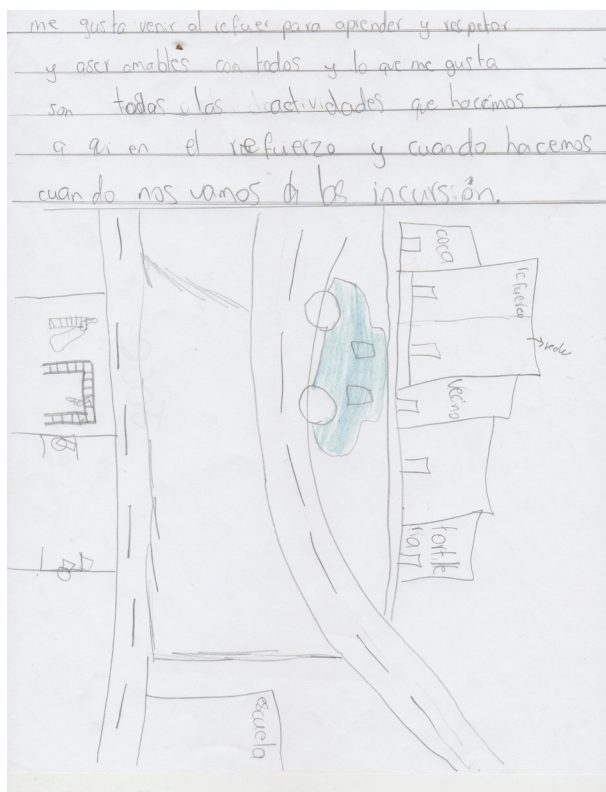 me gusta venir al refuer para aprender y respetar
y aser amables con todos y lo que me gusta
son todas las actividades que hacemos
a qui en el refuerzo y cuando hacemos
cuando nos vamos a los incursión.
coca
refuerzo
→rede
vecino
tortile
ria
escuela